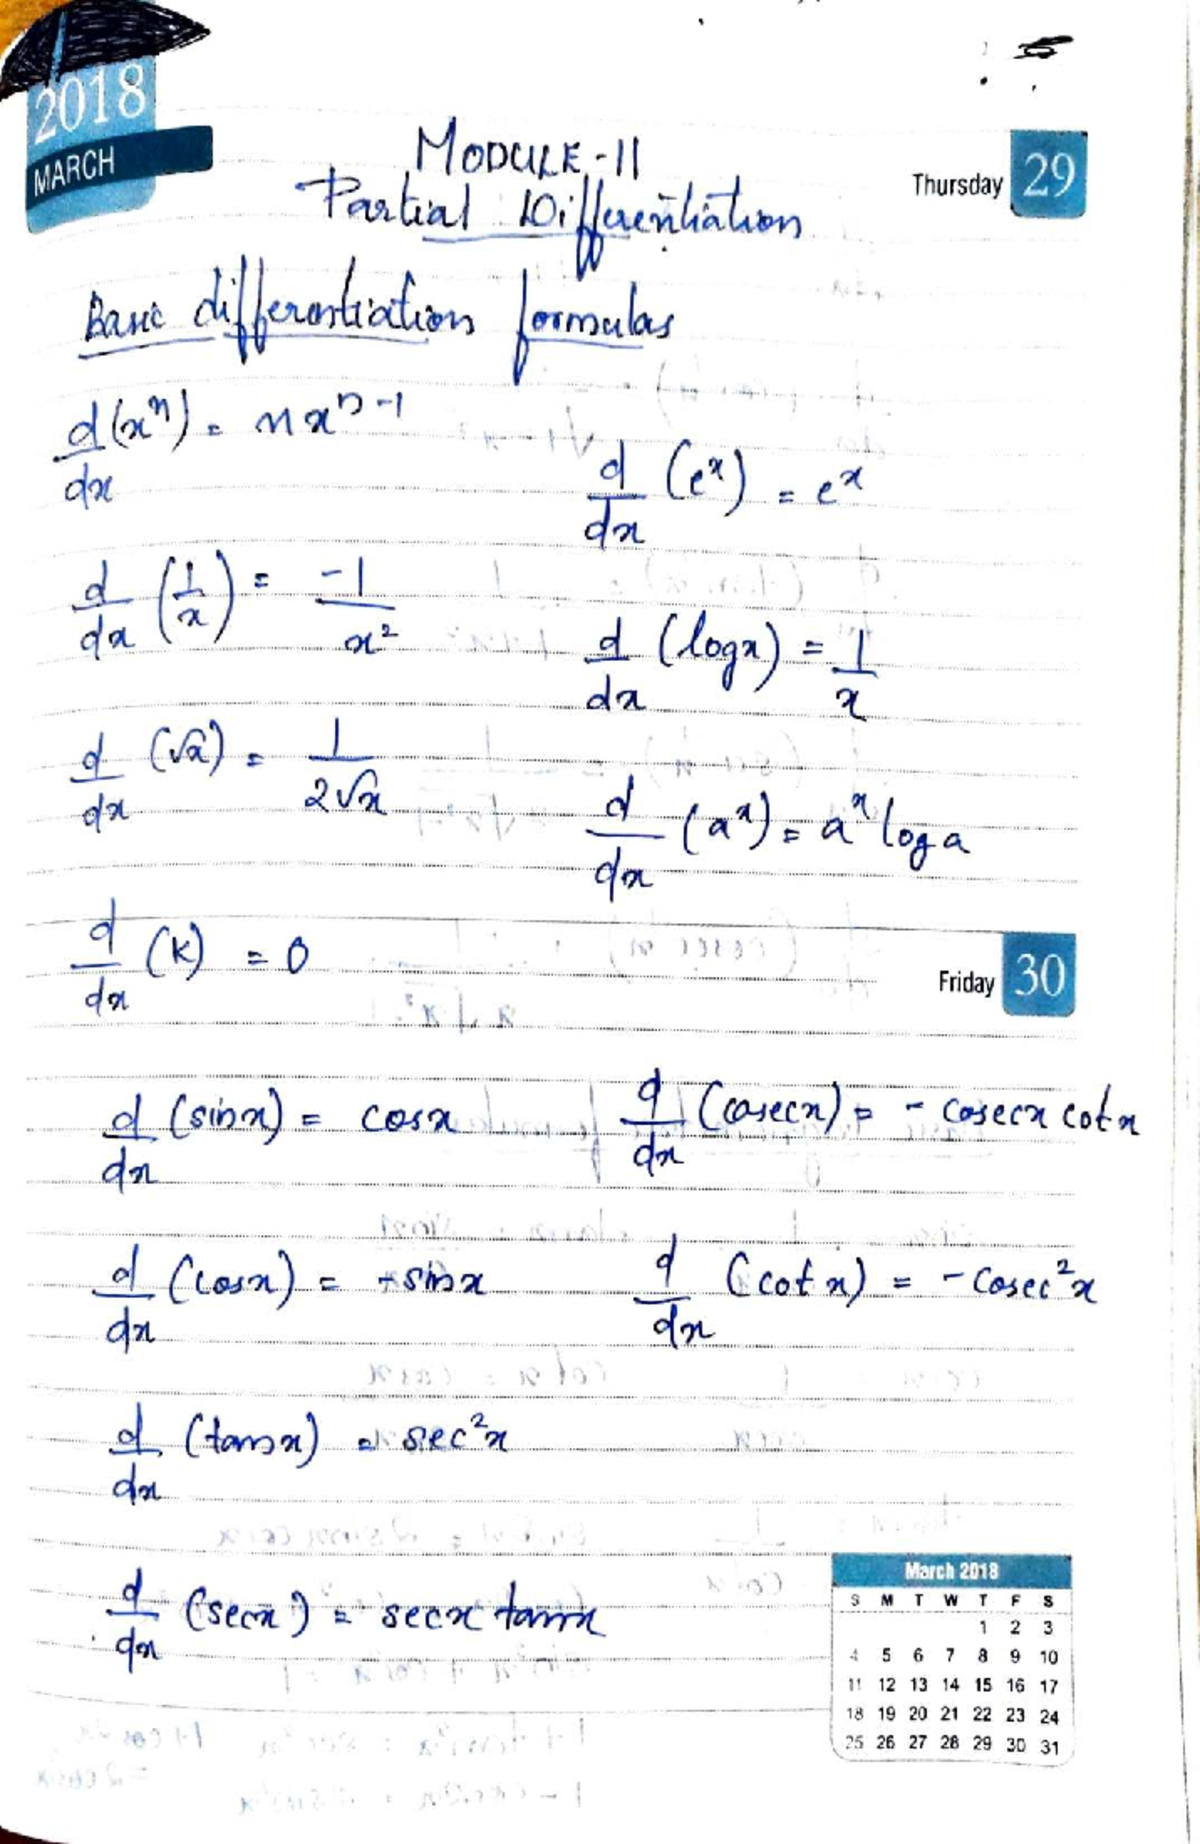 2018
MARCH
Thursday 29
MODULE-II
Partial Differentiation
Basic differentiation formulas
d/dx (xⁿ) = nxⁿ⁻¹
d/dx (eˣ) = eˣ
d/dx (1/x) = -1/x²
d/dx (logx) = 1/x
d/dx (√x) = 1/2√x
d/dx (aˣ) = aˣ log a
d/dx (k) = 0
Friday 30
d/dx (sinx) = cosx
d/dx (cosecx) = - cosecx cotx
d/dx (cosx) = -sinx
d/dx (cot x) = -cosec²x
d/dx (tanx) = sec²x
d/dx (secx) = secx tanx
March 2018
S M T W T F S
1 2 3
4 5 6 7 8 9 10
11 12 13 14 15 16 17
18 19 20 21 22 23 24
25 26 27 28 29 30 31